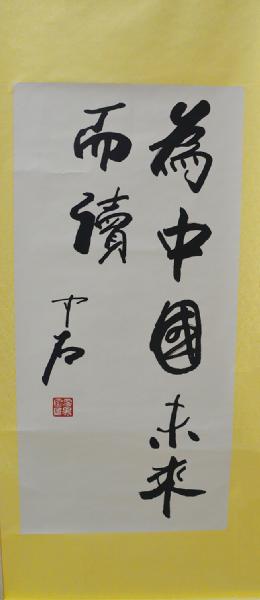 為中國未來
而讀
中石